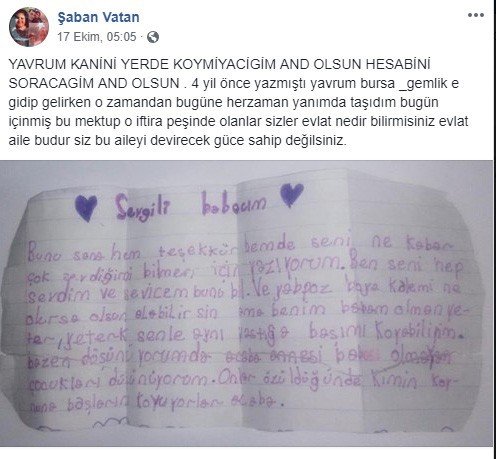 Şaban Vatan
17 Ekim, 05:05
YAVRUM KANİNİ YERDE KOYMİYACİGİM AND OLSUN HESABİNİ
SORACAGİM AND OLSUN . 4 yil önce yazmıştı yavrum bursa _gemlik e
gidip gelirken o zamandan bugüne herzaman yanımda taşıdım bugün
içinmiş bu mektup o iftira peşinde olanlar sizler evlat nedir bilirmisiniz evlat
aile budur siz bu aileyi devirecek güce sahip değilsiniz.
Sevgili babacım
Bunu sana hem teşekkür hemde seni ne kadar
çok sevdiğimi bilmen için yazıyorum. Ben seni hep
sevdim ve sevicem bunu bil. Ve yapboz boya kalemi ne
olursa olsun alabilirsin ama benim babam olman ye-
ter, yeterki senle aynı yastığa başımı koyabiliyim.
bazen düşünüyorumda acaba annesi babası olmayan
çocukları düşünüyorum. Onlar üzüldüğünde kimin koy-
nuna başlarını koyuyorlar acaba.